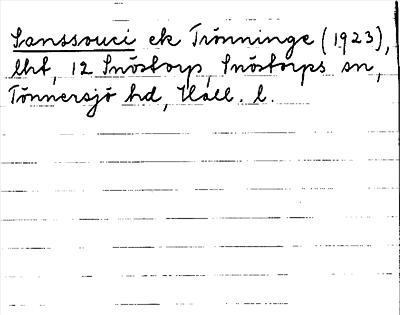 Sanssouci ek Trönninge (1923),
lht, 12 Snöstorp, Snöstorps sn,
Tönnersjö hd, Hall. l.